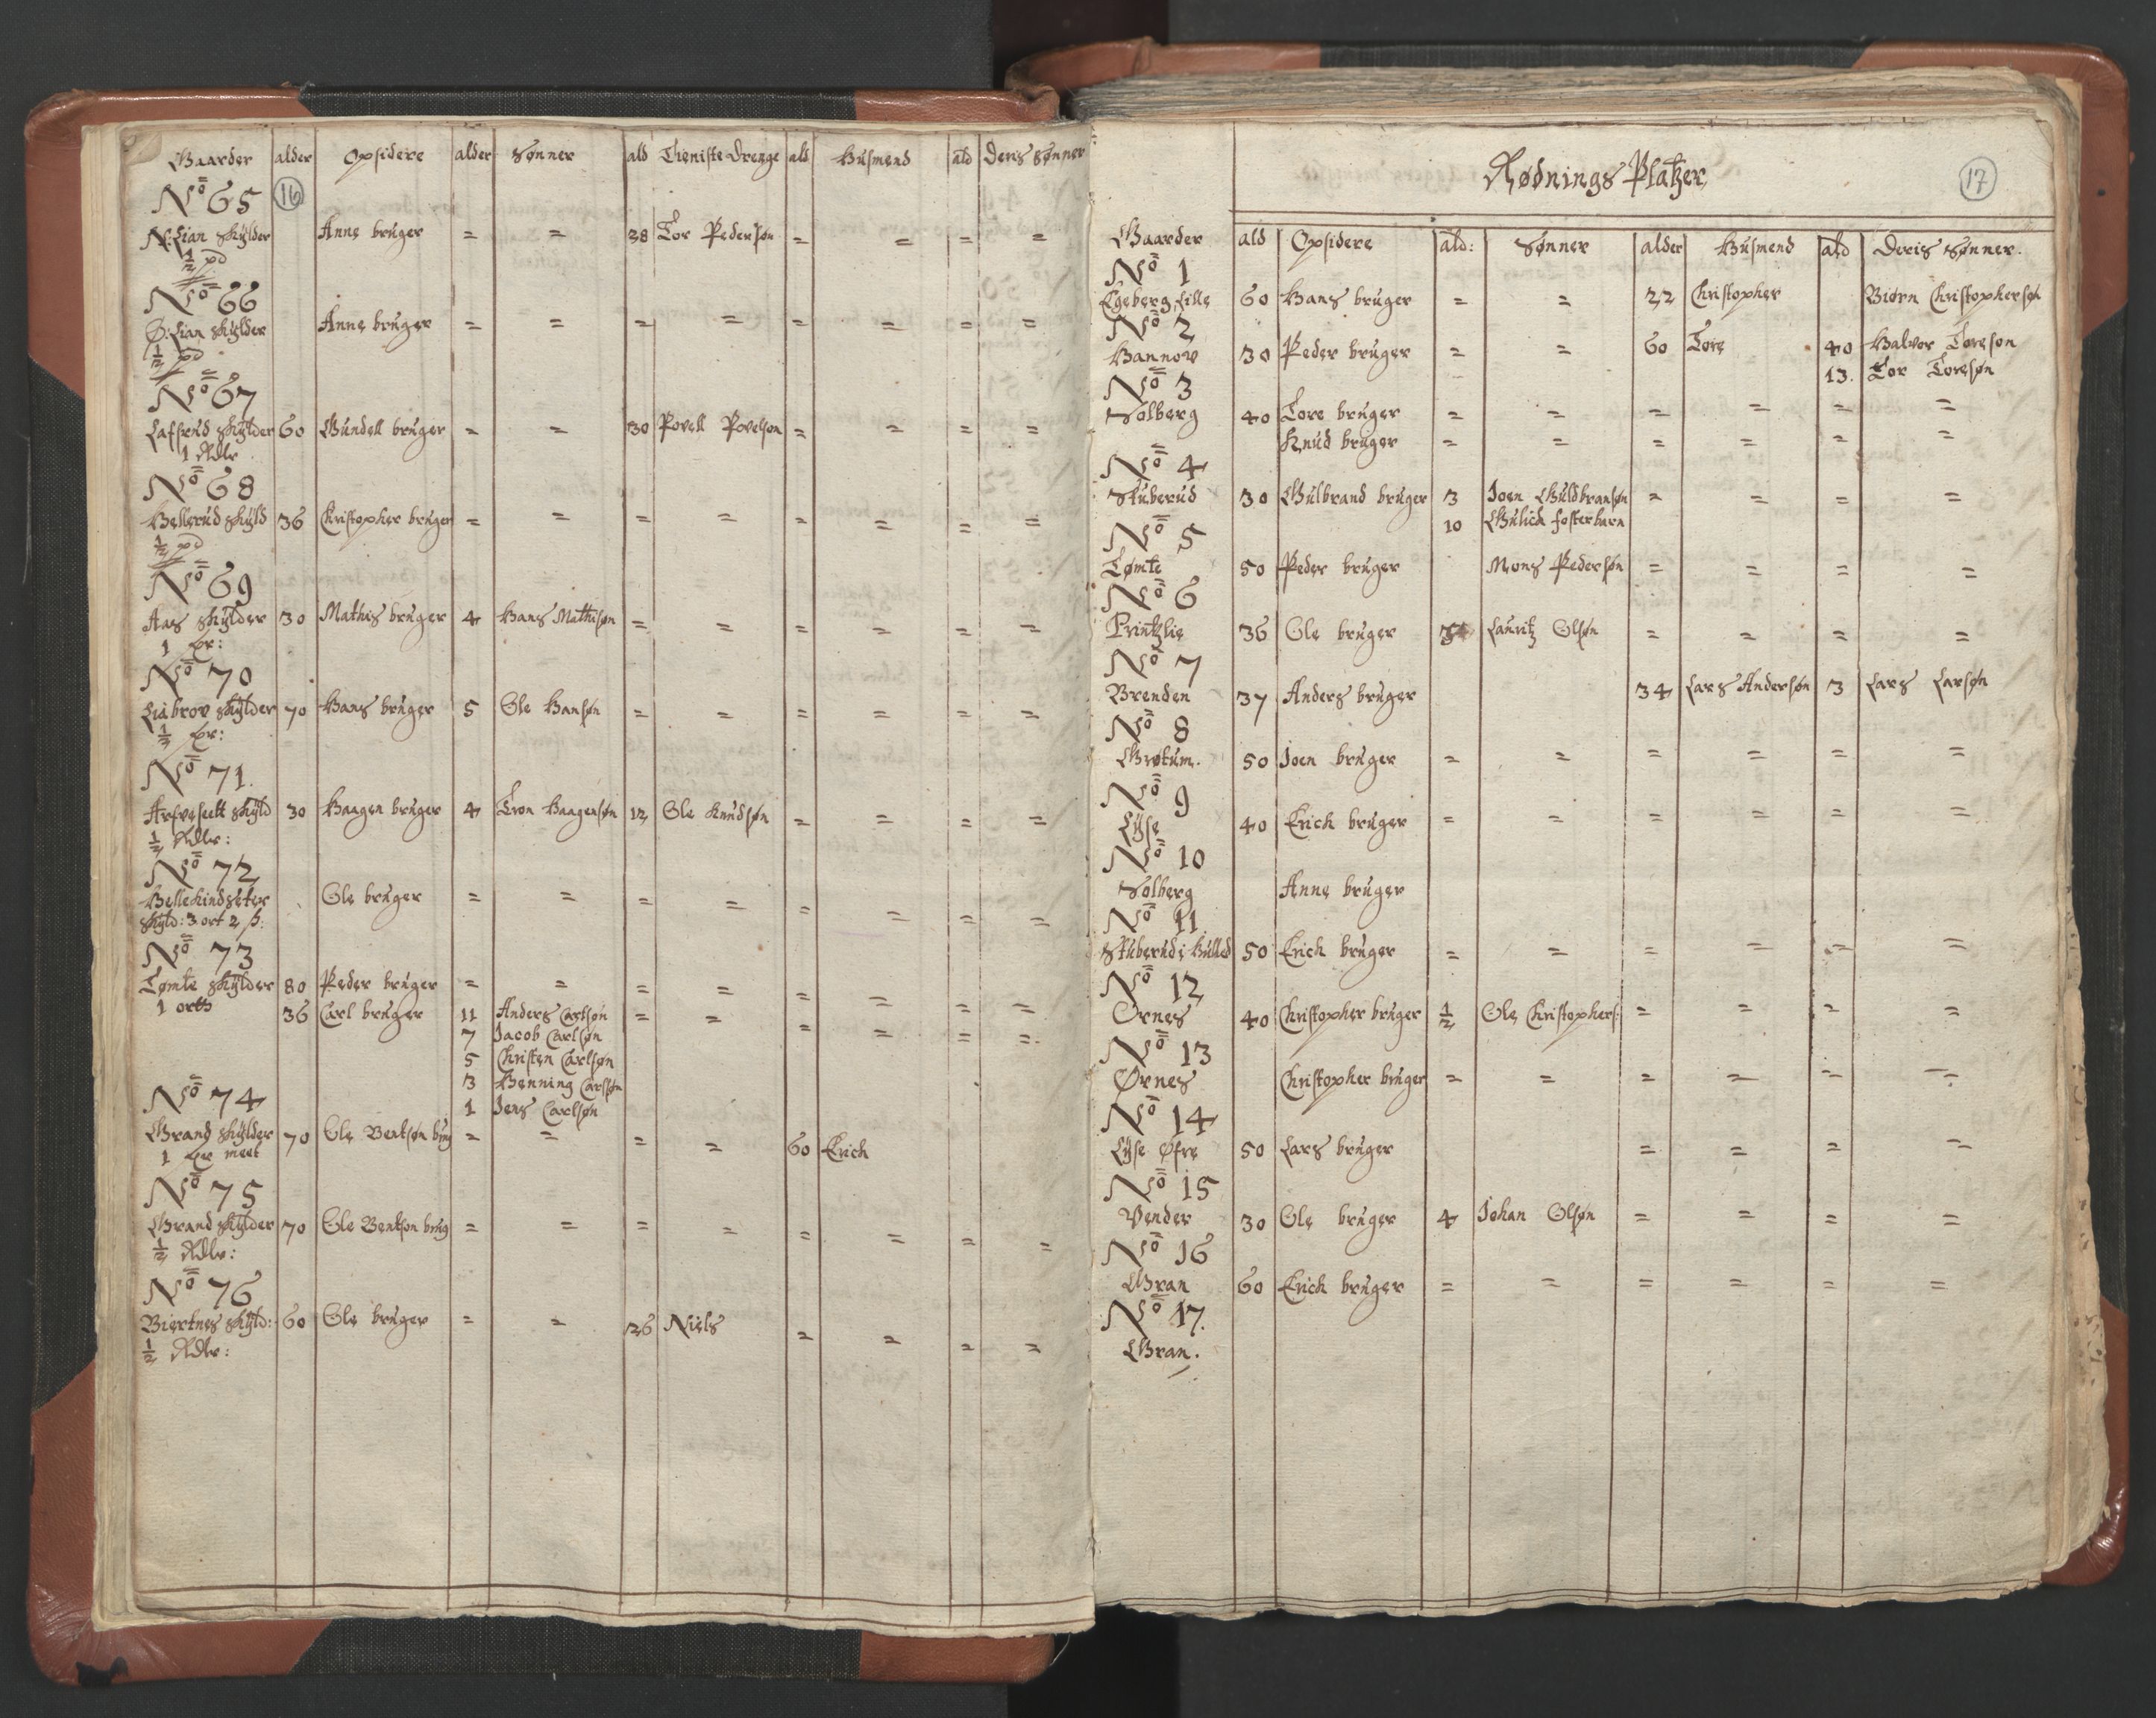 Gaarder alder Opsidere alder Sønner ald Tieniste Drenge ald Husmend ald Deris Sønner
No 65 16
N: Lian skylder Anne bruger = = 38 Tor Pedersøn = = = =
½ pd
No 66
Ø: Lian skylder Anne bruger = = = = = = = =
½ pd
No 67
Lafsrud skylder 60 Gundell bruger = = 30 Povell Povelson = = = =
1 Rdlr
No 68
Hellerud skyld 36 Christopher bruger = = = = = = = =
½ pd
No 69
Aas skylder 30 Mathis bruger 4 Hans Mathisøn = = = = = =
1 fr:
No 70
Liabrov skylder 70 Hans bruger 5 Ole Hansøn = = = = = =
½ fr:
No 71.
Arfvesett skyld 30 Haagen bruger 4 Tron Haagensøn 12 Ole Knudsøn = = = =
½ Rdlr:
No 72
Hellekindseter Ole bruger = = = = = = = =
skyld: 3 ort 2 ß:
No 73
Tømte skylder 80 Peder bruger = = = = = = = =
1 orth 36 Carl bruger 11 Anders Carlsøn = = = = = =
7 Jacob Carlsøn
5 Christen Carlsøn
3 Henning Carlsøn
No 74 1 Jens Carlsøn
Grand skylder 70 Ole Bentsøn brug = = = = 60 Erich
1 fr meel
No 75
Grand skylder 70 Ole Bentson brug = = = = = = = =
½ Rdlr:
No 76
Biertnes skyld: 60 Ole bruger = = 26 Niels = = = =
½ Rdlr:
Rødnings Platzer 17
Gaarder ald Opsidere ald: Sønner alder Husmend ald Deris Sønner.
No 1
Egeberg Lille 60 Hans bruger = = 22 Christopher Biørn Christophersøn
No 2
Hannov 30 Peder bruger = = 60 Tore 40 Halvor Toreson
13. Tor Toresøn
No 3
Solberg 40 Tore bruger = = = = = =
Knud bruger = = = = = =
No 4
Stuberud 30 Gulbrand bruger 3 Joen Guldbransøn = = = =
10 Gulich fosterbarn
No 5
Tømte 50 Peder bruger Mons Pedersøn = = = =
No 6
Printzlie 36 Ole bruger Lauritz Olsøn = = = =
No 7
Brenden 37 Anders bruger 34 Lars Andersøn 3 Lars Larsøn
No 8
Grøtum. 50 Joen bruger = = = = = =
No 9
Lyse 40 Erich bruger = = = = = =
No 10
Solberg Anne bruger
No 11
Stuberud i Hulled 50 Erich bruger = = = = = =
No 12
Ornes 40 Christopher bruger ½ Ole Christophers: = = = =
No 13
Ørnes Christopher bruger = = = = = =
No 14
Lyse Øfre 50 Lars bruger = = = =
No 15
Vender 30 Ole bruger 4 Johan Olsøn = = = =
No 16
Gran 60 Erich bruger = = = = = =
No 17.
Gran.